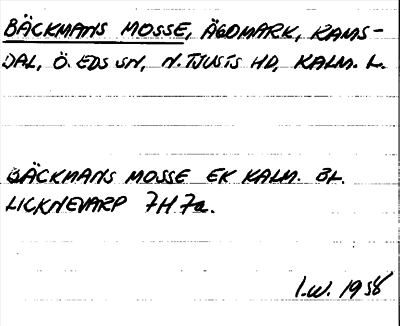 BÄCKMANS MOSSE, ÄGDMARK, RAMS-
DAL, Ö. EDS SN, N. TJUSTS HD, KALM. L.
BÄCKMANS MOSSE EK KALM. BL.
LICKNEVARP 7H 7a.
I.W. 1958